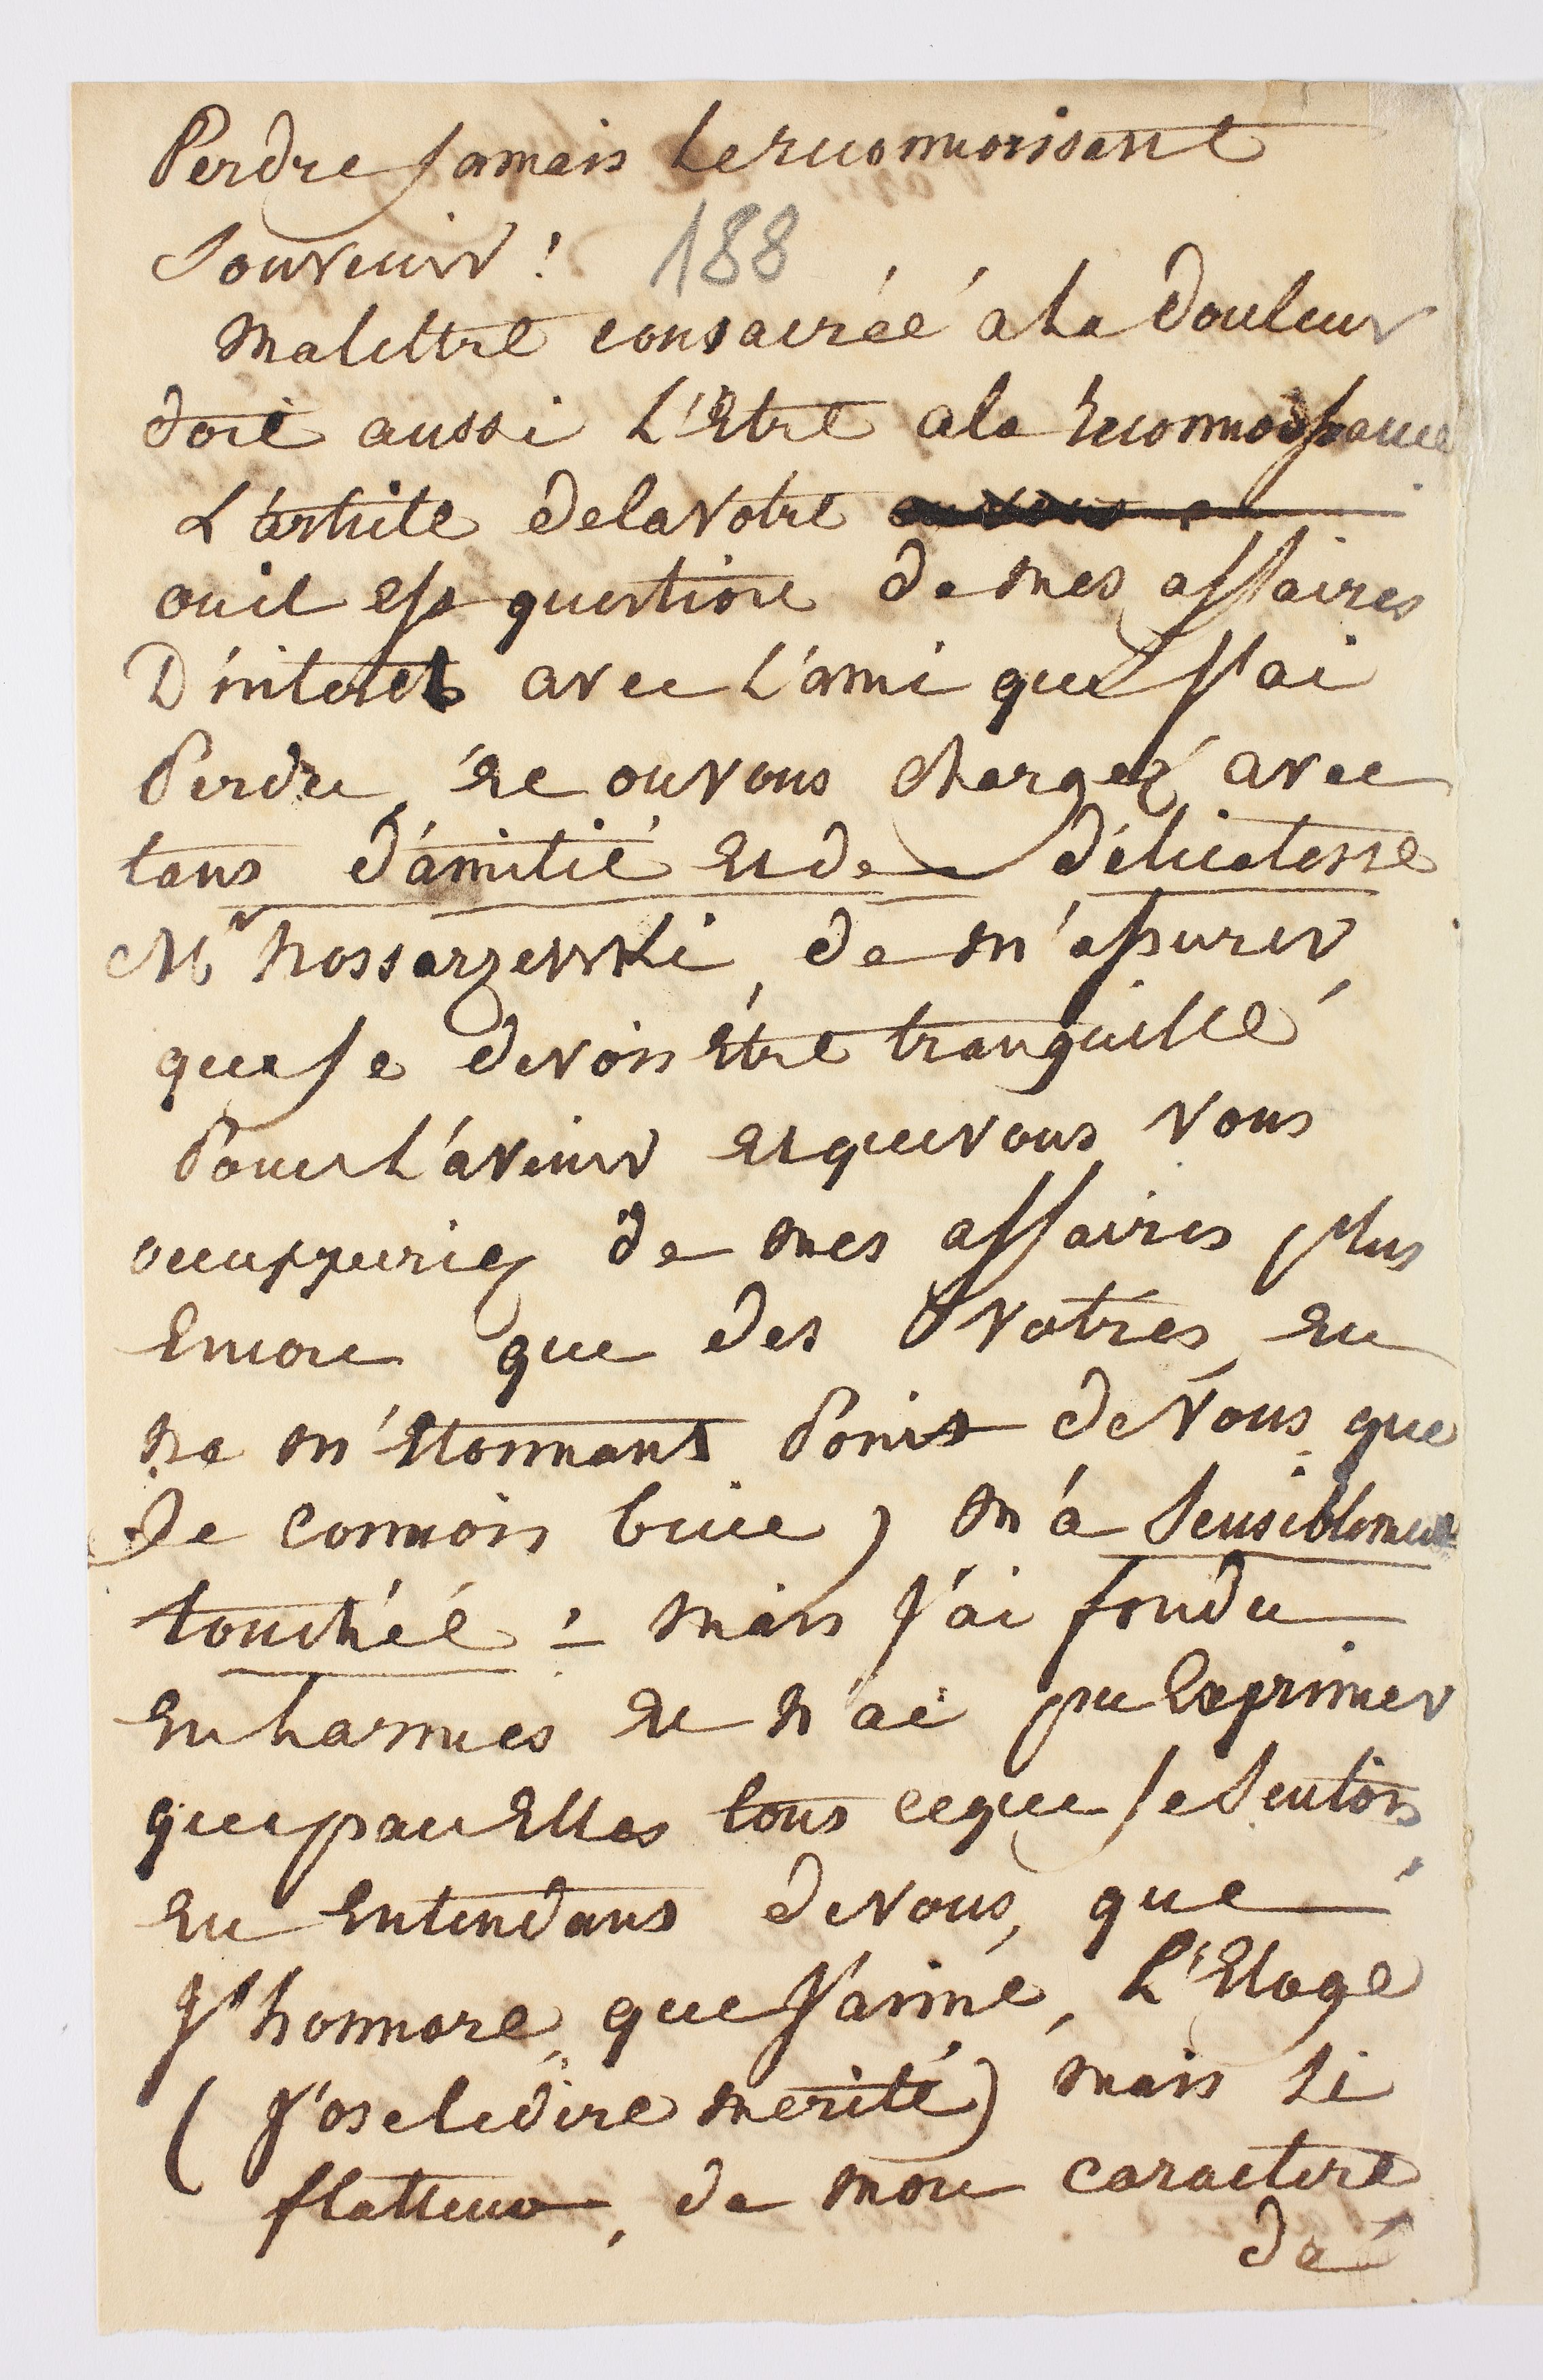 Perdre jamais le reconnoissant
Souvenir !
188
ma lettre consacréé á la Douleur
doit aussi L'Etre a la reconnoissance
L'article de la votre
ou il est question de mes affaires
D'interet avec L'ami que J'ai
Perdu, et ou vous chargez avec
tans d'amitié et de délicatesse
Mr Kossarzewski, de m'assurer,
que Je devois Etre tranquille
Pour L'avenir et que vous vous
occupperiez de mes affaires plus
Encore que des Votres, en
ne m'Etonnant Point de Vous, que
Je connois bien ) m'a Sensiblement
touchéé :- mais J'ai fondu
En Larmes et n'ai pu Exprimer
que par Elles tous ce que Je Sentois,
En Entendans de Vous, que
J'honnore, que J'aime, L'Eloge
( J'ose le dire merité) mais si
flatteur, de mon caractere
de